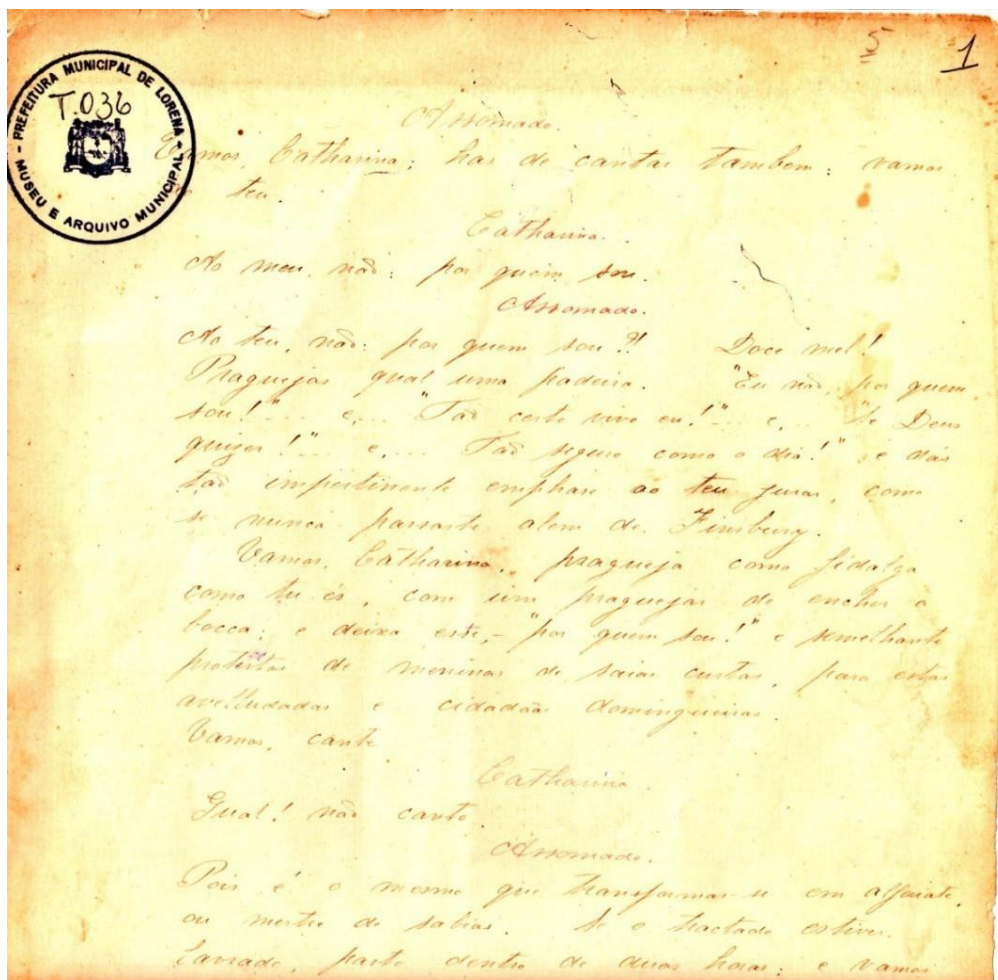 5
1
PREFEITURA MUNICIPAL DE LORENA
T.036
MUSEU E ARQUIVO MUNICIPAL
Assomado.
Vamos, Catharina; has de cantar tambem: vamos
teu.
Catharina.
Ao meu, não: por quem sou.
Assomado.
Ao teu, não: por quem sou?! Doce mel!
Praguejas qual uma padeira. "Eu não, por quem
sou!"... e... "Tão certo vivo eu!"... e... "Se Deus
quizer!"... e.... Tão seguro como o dia!" e dás
tão impertinente emphase ao teu jurar, como
se nunca passaste alem de Finsbury.
Vamos, Catharina, pragueja como fidalga
como tu és, com um praguejar de encher a
bocca; e deixa este, - "por quem sou!" e semelhante
de meninas de saias curtas, para estas
avelludadas e cidadãos domingueiras.
Vamos, cante
Catharina.
Qual! não canto.
Assomado.
Pois é o mesmo que transformar-se em alfaiate,
ou mestre de sabias. Se o tractado estiver
Lavrado, parto dentro de duas horas; e vamos